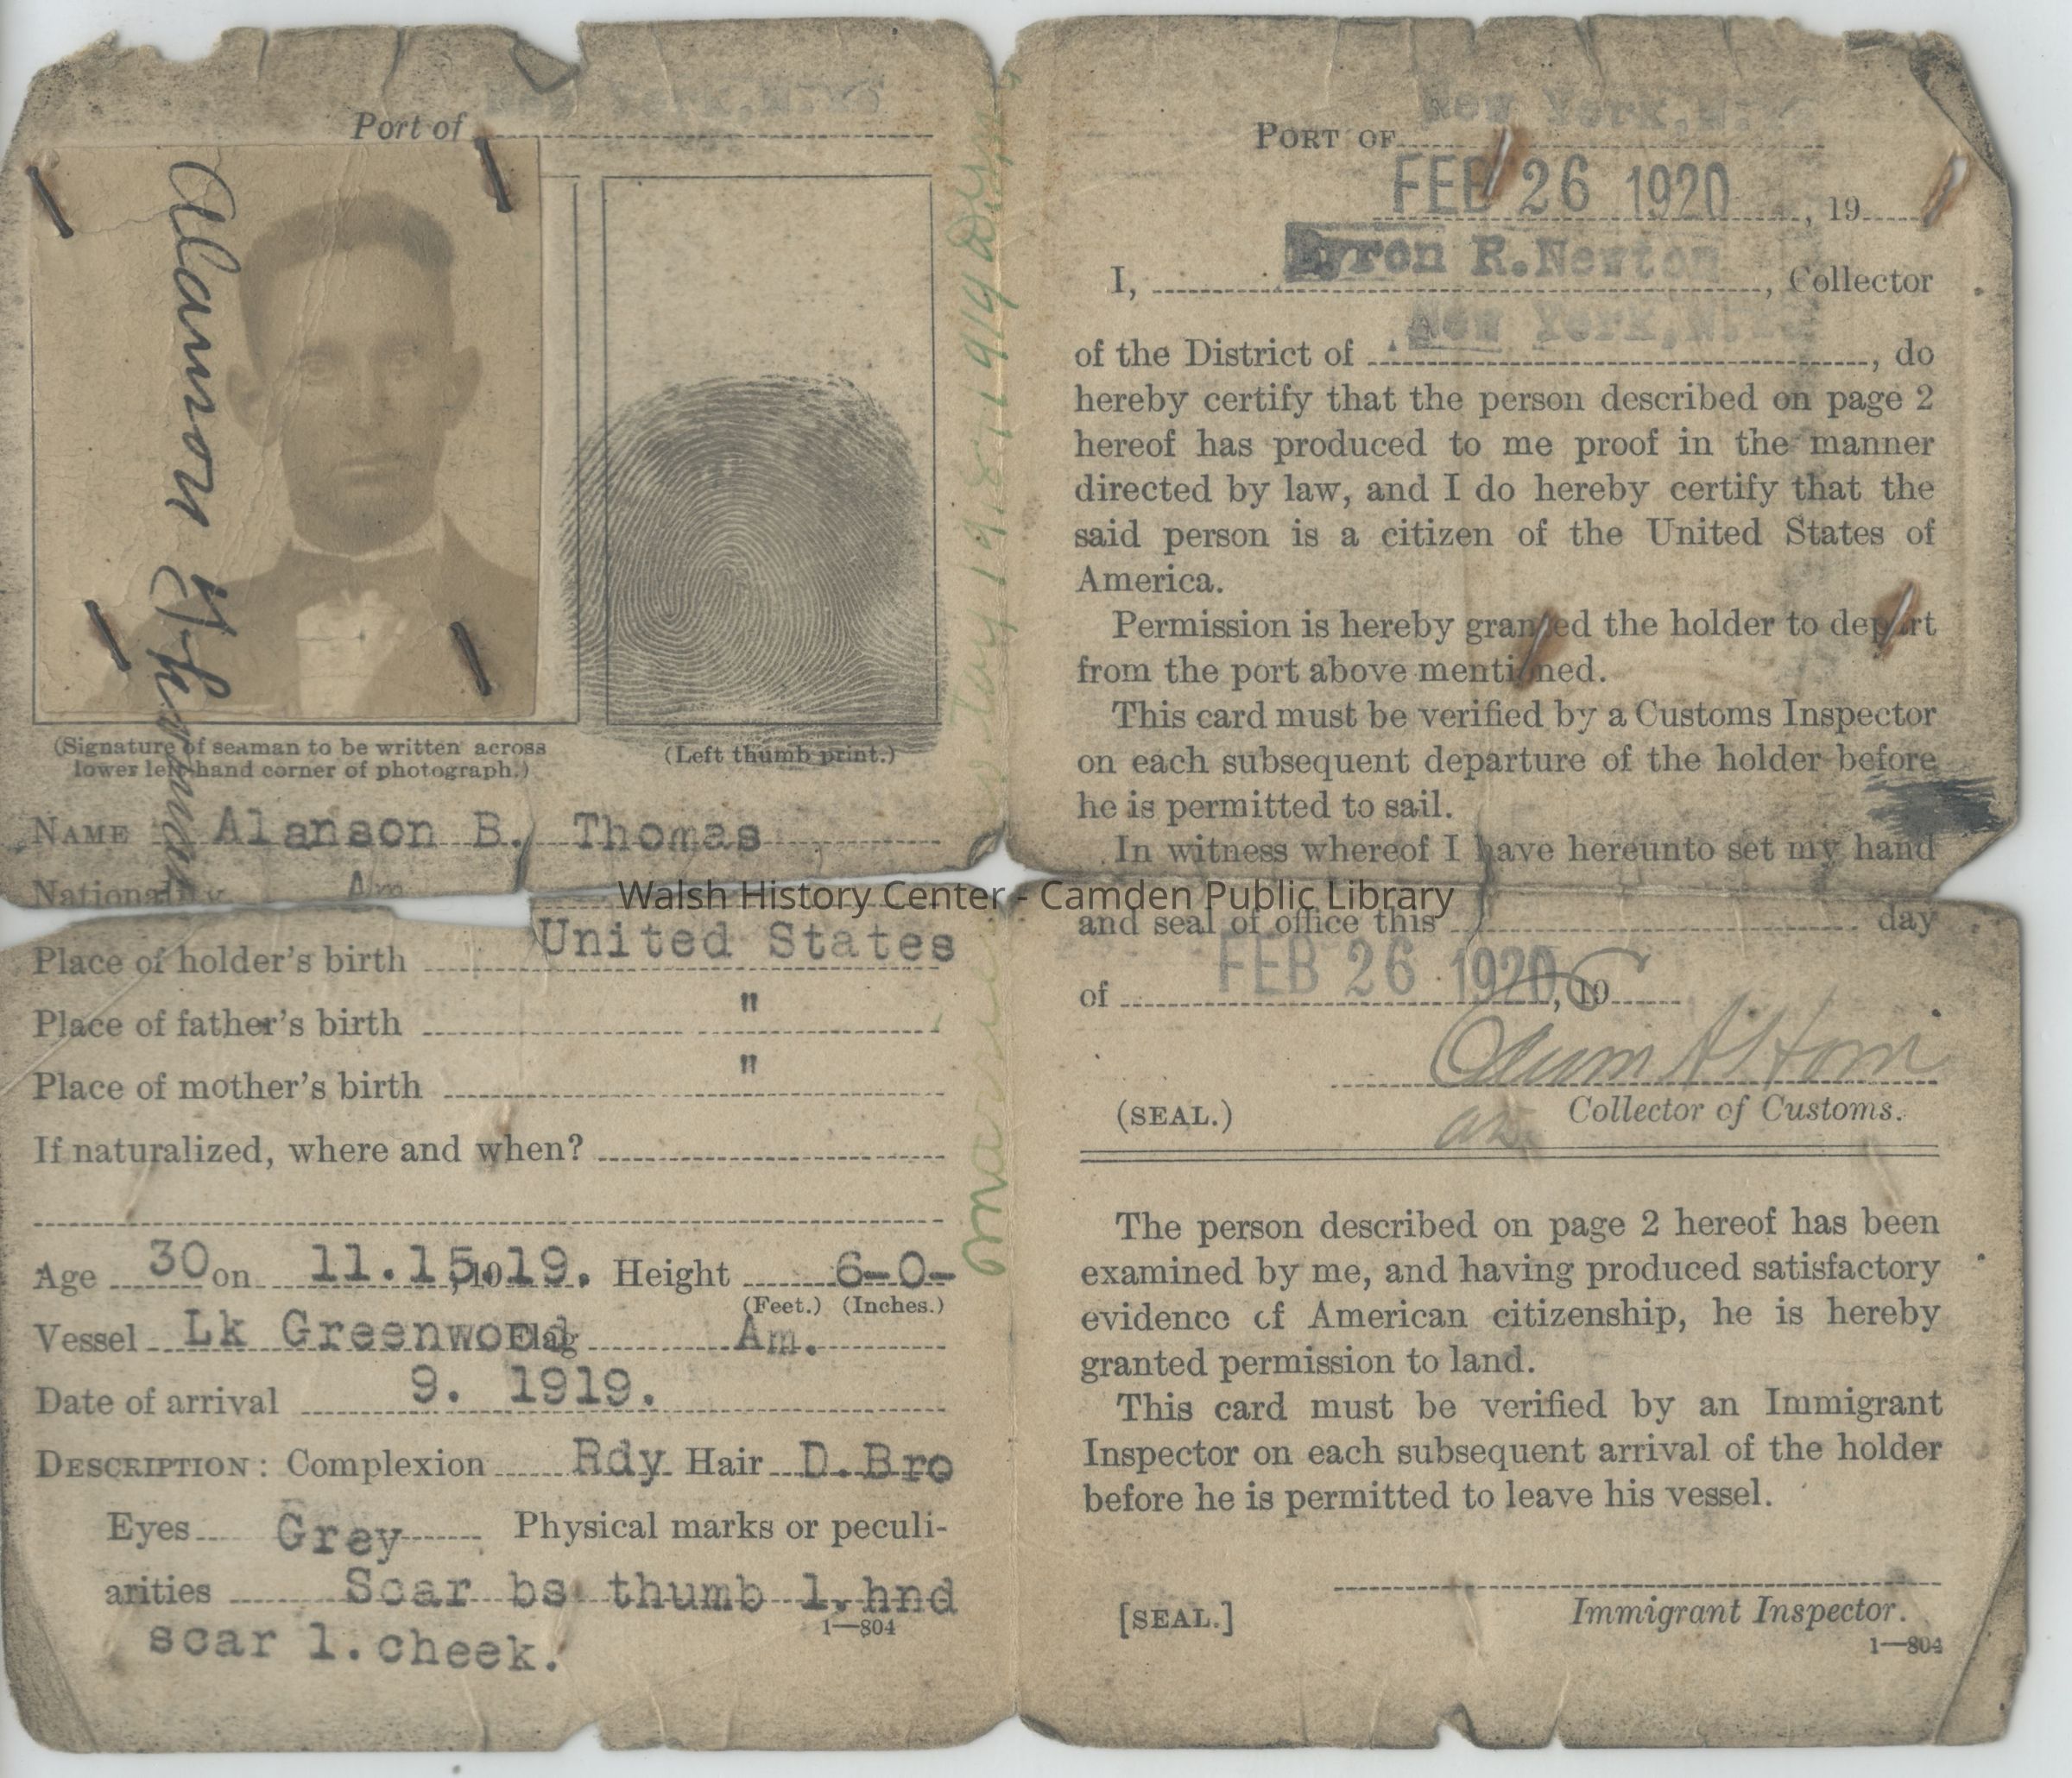 Port of New York, N.Y.
Alanson
Thomas
(Signature of seaman to be written across
lower left-hand corner of photograph.)
(Left thumb print.)
NAME Alanson B. Thomas
Nationality Am
Place of holder's birth United States
Place of father's birth "
Place of mother's birth "
If naturalized, where and when?
Age 30 on 11.15, 1919. Height 6-0-
(Feet.) (Inches.)
Vessel Lk Greenwood Flag Am.
Date of arrival 9. 1919.
DESCRIPTION: Complexion Rdy Hair D.Bro
Eyes Grey Physical marks or peculi-
arities Scar bs thumb l.hnd
1—804
scar l.cheek.
1919
PORT OF New York, N.Y.
FEB 26 1920, 19
I, Byron R.Newton, Collector
of the District of New York, N.Y., do
hereby certify that the person described on page 2
hereof has produced to me proof in the manner
directed by law, and I do hereby certify that the
said person is a citizen of the United States of
America.
Permission is hereby granted the holder to depart
from the port above mentioned.
This card must be verified by a Customs Inspector
on each subsequent departure of the holder before
he is permitted to sail.
In witness whereof I have hereunto set my hand
Walsh History Center - Camden Public Library
and seal of office this day
of FEB 26 1920, 19
(SEAL.) Collector of Customs.
The person described on page 2 hereof has been
examined by me, and having produced satisfactory
evidence of American citizenship, he is hereby
granted permission to land.
This card must be verified by an Immigrant
Inspector on each subsequent arrival of the holder
before he is permitted to leave his vessel.
[SEAL.] Immigrant Inspector.
1—804